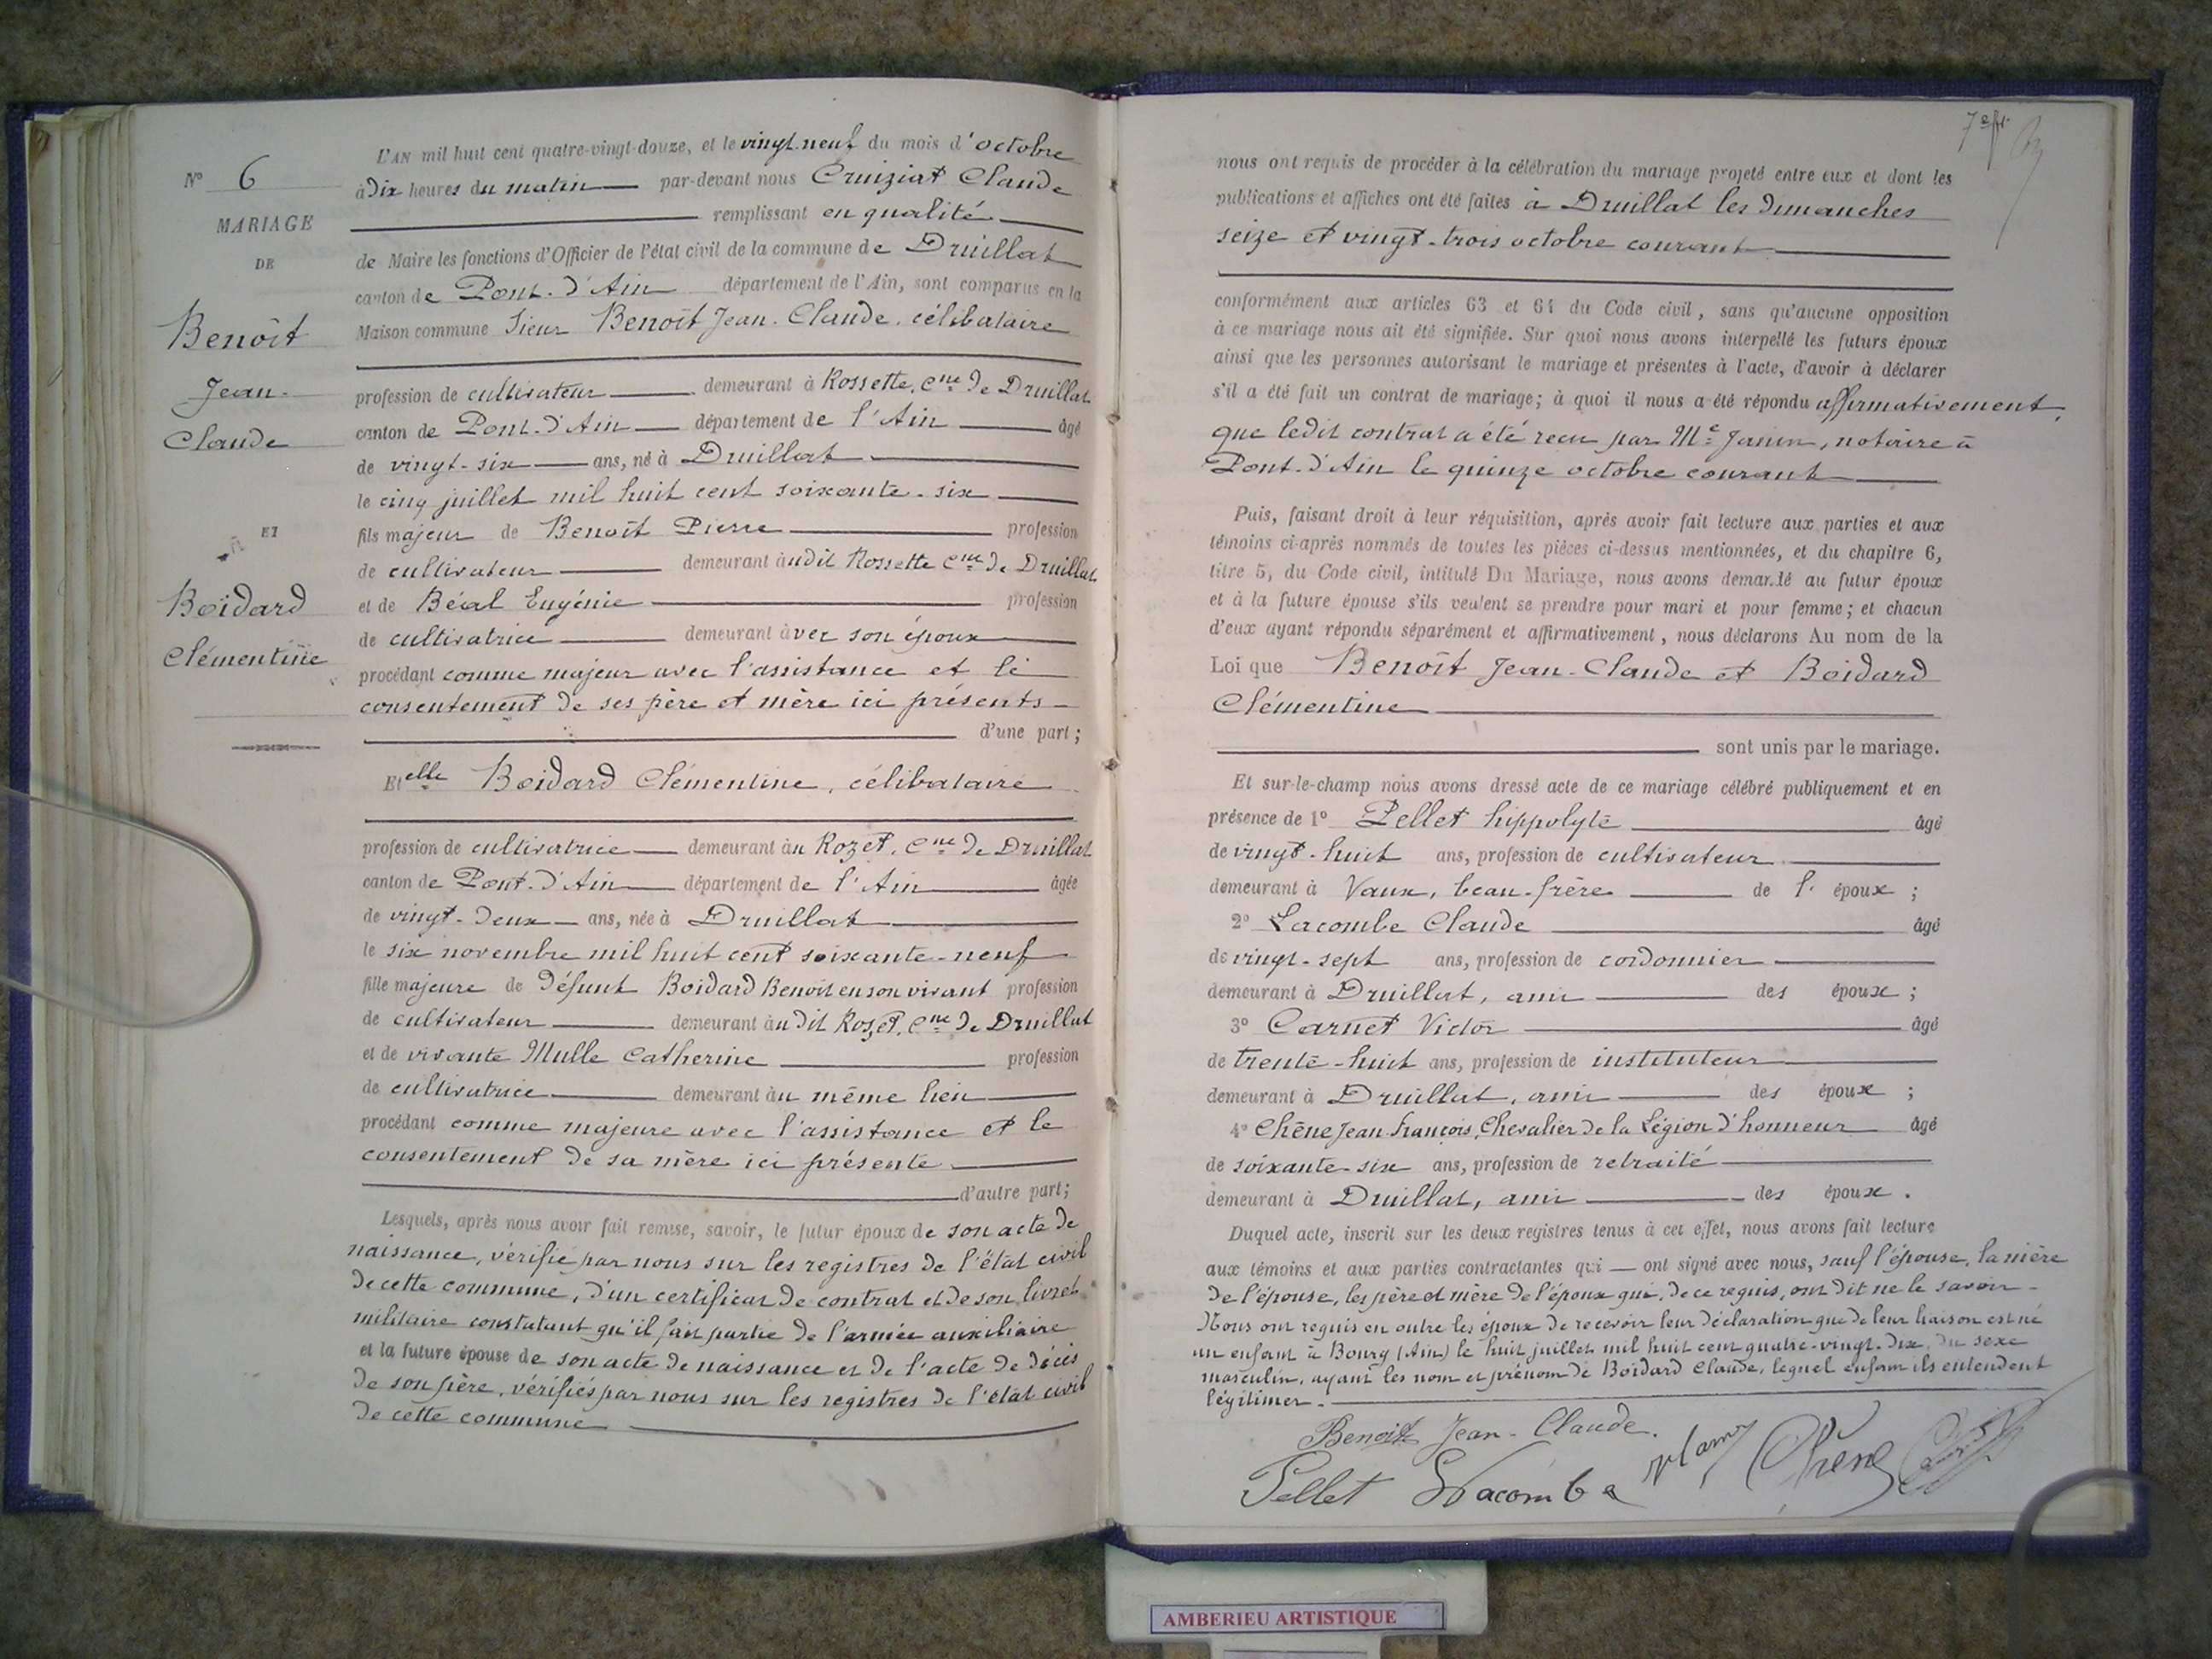 N° 6
MARIAGE
DE
Benoît
Jean-
Claude
ET
Boidard
Clémentine
L'AN mil huit cent quatre-vingt-douze, et le vingt-neuf du mois d'octobre
à Dix heures du matin par-devant nous Cruiziat Claude
remplissant en qualité
de Maire les fonctions d'Officier de l'état civil de la commune de Druillat
canton de Pont-d'Ain département de l'Ain, sont comparus en la
Maison commune Sieur Benoît Jean-Claude, célibataire
profession de cultivateur demeurant à Rossette, Cne de Druillat
canton de Pont-d'Ain département de l'Ain âgé
de vingt-six ans, né à Druillat
le cinq juillet mil huit cent soixante-six
fils majeur de Benoît Pierre profession
de cultivateur demeurant audit Rossette Cne de Druillat
et de Béal Eugénie profession
de cultivatrice demeurant avec son époux
procédant comme majeur avec l'assistance et le
consentement de ses père et mère ici présents
d'une part;
Et elle Boidard Clémentine, célibataire
profession de cultivatrice demeurant au Rozet, Cne de Druillat
canton de Pont-d'Ain département de l'Ain âgée
de vingt-deux ans, née à Druillat
le six novembre mil huit cent soixante-neuf
fille majeure de défunt Boidard Benoit en son vivant profession
de cultivateur demeurant au dit Rozet, Cne de Druillat
et de vivante Mulle Catherine profession
de cultivatrice demeurant au même lieu
procédant comme majeure avec l'assistance et le
consentement de sa mère ici présente
d'autre part;
Lesquels, après nous avoir fait remise, savoir, le futur époux de son acte de
naissance, vérifié par nous sur les registres de l'état civil
de cette commune, d'un certificat de contrat et de son livret
militaire constatant qu'il fait partie de l'armée auxiliaire
et la future épouse de son acte de naissance et de l'acte de décès
de son père, vérifiés par nous sur les registres de l'état civil
de cette commune
nous ont requis de procéder à la célébration du mariage projeté entre eux et dont les
publications et affiches ont été faites à Druillat les dimanches
seize et vingt-trois octobre courant
conformément aux articles 63 et 64 du Code civil, sans qu'aucune opposition
à ce mariage nous ait été signifiée. Sur quoi nous avons interpellé les futurs époux
ainsi que les personnes autorisant le mariage et présentes à l'acte, d'avoir à déclarer
s'il a été fait un contrat de mariage; à quoi il nous a été répondu affirmativement,
que ledit contrat a été reçu par Me Janin, notaire à
Pont-d'Ain le quinze octobre courant
Puis, faisant droit à leur réquisition, après avoir fait lecture aux parties et aux
témoins ci-après nommés de toutes les pièces ci-dessus mentionnées, et du chapitre 6,
titre 5, du Code civil, intitulé Du Mariage, nous avons demandé au futur époux
et à la future épouse s'ils veulent se prendre pour mari et pour femme; et chacun
d'eux ayant répondu séparément et affirmativement, nous déclarons Au nom de la
Loi que Benoît Jean-Claude et Boidard
Clémentine
sont unis par le mariage.
Et sur-le-champ nous avons dressé acte de ce mariage célébré publiquement et en
présence de 1° Pellet hippolyte âgé
de vingt-huit ans, profession de cultivateur
demeurant à Vaux, beau-frère de l'époux ;
2° Lacombe Claude âgé
de vingt-sept ans, profession de cordonnier
demeurant à Druillat, ami des époux ;
3° Carnet Victor âgé
de trente-huit ans, profession de instituteur
demeurant à Druillat, ami des époux ;
4° Chêne Jean-François, Chevalier de la Légion d'honneur âgé
de soixante-six ans, profession de retraité
demeurant à Druillat, ami des époux.
Duquel acte, inscrit sur les deux registres tenus à cet effet, nous avons fait lecture
aux témoins et aux parties contractantes qui ont signé avec nous, sauf l'épouse, la mère
de l'épouse, les père et mère de l'époux qui, de ce requis, ont dit ne le savoir -
Nous ont requis en outre les époux de recevoir leur déclaration que de leur liaison est né
un enfant à Bourg (Ain) le huit juillet mil huit cent quatre-vingt-dix, du sexe
masculin, ayant les nom et prénom de Boidard Claude, lequel enfant ils entendent
légitimer.
Benoit Jean-Claude.
Pellet Lacombe Chêne
AMBERIEU ARTISTIQUE